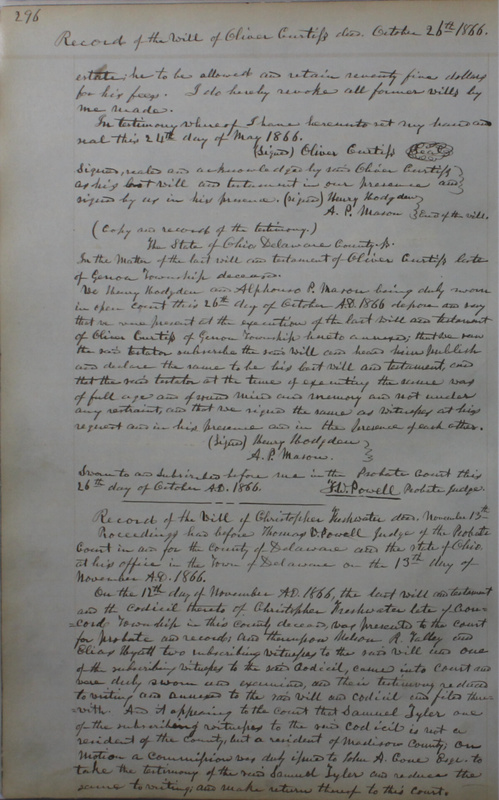 296
Record of the Will of Oliver Curtiss decd. October 26th 1866.
estate; he to be allowed and retain seventy five dollars
for his fees. I do hereby revoke all former wills by
me made.
In testimony whereof I have hereunto set my hand and
seal this 24th day of May 1866.
(Signed) Oliver Curtiss Seal
Signed, sealed and acknowledged by said Oliver Curtiss
as his last will and testament in our presence and
signed by us in his presence. (signed) Henry Hodgden
A. P. Mason End of the will.
(Copy and record of the testimony.)
The State of Ohio Delaware County ss.
In the Matter of the last will and testament of Oliver Curtiss late
of Genoa Township deceased.
We Henry Hodgden and Alphonso P. Mason being duly sworn
in open court this 26th day of October A.D. 1866 depose and say
that we were present at the execution of the last will and testament
of Oliver Curtiss of Genoa Township hereto annexed; that we saw
the said testator subscribe the said will and heard him publish
and declare the same to be his last will and testament, and
that the said testator at the time of executing the same was
of full age and of sound mind and memory and not under
any restraint, and that we signed the same as witnesses at his
request and in his presence and in the presence of each other.
(Signed) Henry Hodgden
A. P. Mason.
Sworn to and subscribed before me in the Probate Court this
26th day of October A.D. 1866. T.W. Powell Probate Judge.
Record of the Will of Christopher Freshwater decd. November 13th
Proceedings had before Thomas W. Powell Judge of the Probate
Court in and for the County of Delaware and the state of Ohio
at his office in the Town of Delaware on the 13th day of
November A.D. 1866.
On the 12th day of November A.D. 1866, the last will and testament
and the Codicil thereto of Christopher Freshwater late of Con-
=cord Township in this county deceased, was presented to the court
for probate and record; And thereupon Nelson R. Talley and
Elias Hyatt two subscribing witnesses to the said will and one
of the subscribing witnesses to the said Codicil, came into Court and
were duly sworn and examined, and their testimony reduced
to writing and annexed to the said will and Codicil and filed there-
=with. And it appearing to the court that Samuel Tyler one
of the subscribing witnesses to the said codicil is not a
resident of the County, but a resident of Madison County; On
motion a Commission was duly issued to John A. Cone Esqr. to
take the testimony of the said Samuel Tyler and reduce the
same to writing; and make return thereof to this Court.